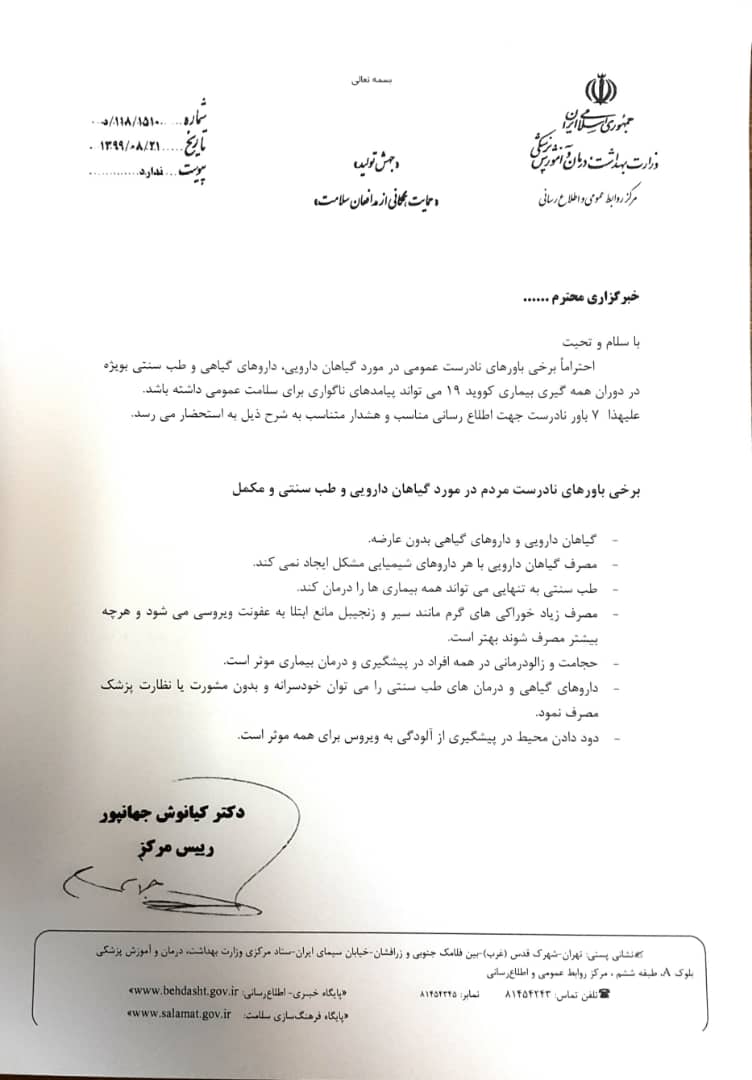 بسمه تعالی
جمهوری اسلامی ایران
وزارت بهداشت درمان و آموزش پزشکی
مرکز روابط عمومی و اطلاع رسانی
«جهش تولید»
«حمایت همگانی از مدافعان سلامت»
شماره ۱۱۸/۱۵۱۰/د
تاریخ ۱۳۹۹/۰۸/۲۱
پیوست ندارد
خبرگزاری محترم ......
با سلام و تحیت
احتراماً برخی باورهای نادرست عمومی در مورد گیاهان دارویی، داروهای گیاهی و طب سنتی بویژه
در دوران همه گیری بیماری کووید ۱۹ می تواند پیامدهای ناگواری برای سلامت عمومی داشته باشد.
علیهذا ۷ باور نادرست جهت اطلاع رسانی مناسب و هشدار متناسب به شرح ذیل به استحضار می رسد.
برخی باورهای نادرست مردم در مورد گیاهان دارویی و طب سنتی و مکمل
- گیاهان دارویی و داروهای گیاهی بدون عارضه.
- مصرف گیاهان دارویی با هر داروهای شیمیایی مشکل ایجاد نمی کند.
- طب سنتی به تنهایی می تواند همه بیماری ها را درمان کند.
- مصرف زیاد خوراکی های گرم مانند سیر و زنجبیل مانع ابتلا به عفونت ویروسی می شود و هرچه
بیشتر مصرف شوند بهتر است.
- حجامت و زالودرمانی در همه افراد در پیشگیری و درمان بیماری موثر است.
- داروهای گیاهی و درمان های طب سنتی را می توان خودسرانه و بدون مشورت یا نظارت پزشک
مصرف نمود.
- دود دادن محیط در پیشگیری از آلودگی به ویروس برای همه موثر است.
دکتر کیانوش جهانپور
رییس مرکز
نشانی پستی: تهران-شهرک قدس (غرب)-بین فلامک جنوبی و زرافشان-خیابان سیمای ایران-ستاد مرکزی وزارت بهداشت، درمان و آموزش پزشکی
بلوک A، طبقه ششم ، مرکز روابط عمومی و اطلاع‌رسانی
تلفن تماس: ۸۱۴۵۴۲۴۳ نمابر: ۸۱۴۵۴۲۴۵ «پایگاه خبری- اطلاع‌رسانی: www.behdasht.gov.ir»
«پایگاه فرهنگ‌سازی سلامت: www.salamat.gov.ir»